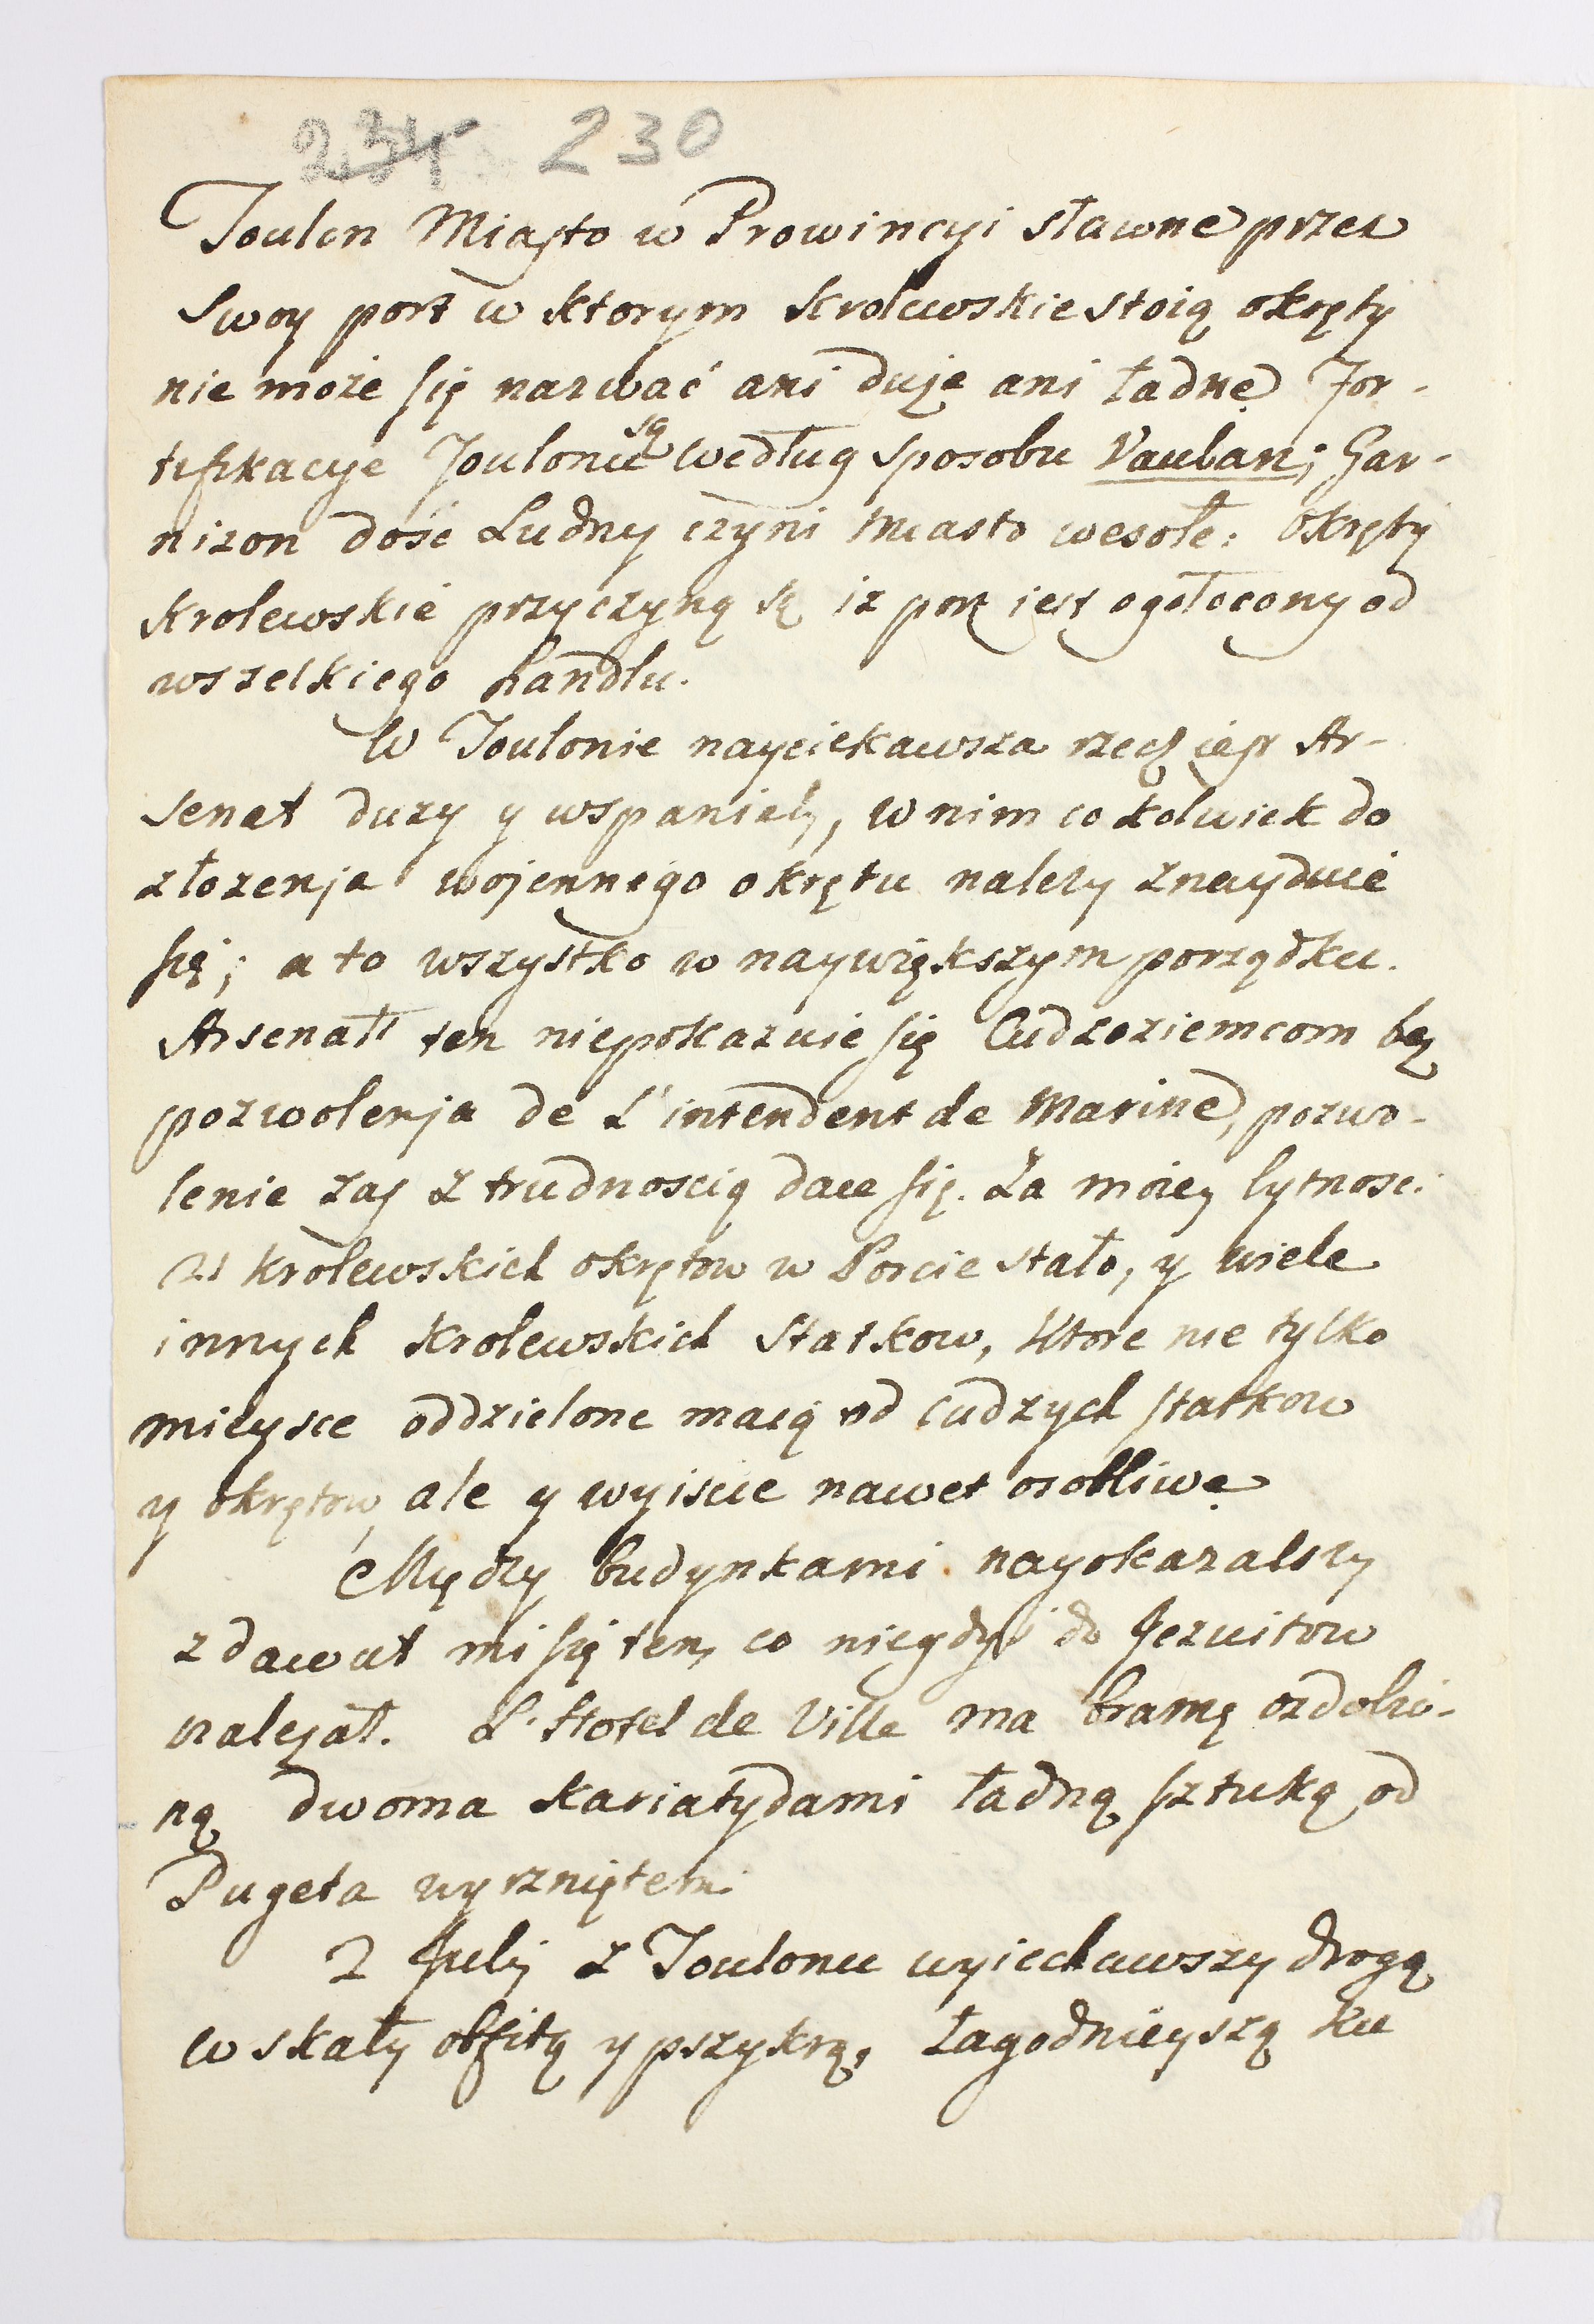 234 230
Toulon Miasto w Prowincyi sławne przez
Swoy port w ktorym Krolewskie stoią okręty
nie może się nazwać ani duże ani ładne For-
tyfikacye Toulonu są według sposobu Vauban; Gar-
nizon dość Ludny czyni Miasto wesołe: Okręty
Krolewskie przyczyną są iz port iest ogołocony od
wszelkiego handlu.
W Toulonie nayciekawsza rzecz iest Ar-
senał duzy y wspaniały, w nim cokolwiek do
złozenja wojennego okrętu nalezy znayduie
się; a to wszystko w naywiększym porządku.
Arsenał ten niepokazuie się Cudzoziemcom bez
pozwolenja de L'intendent de Marine, pozwo-
lenie zaś z trudnoscią daie się. Za moiey bytnosci
21 krolewskich okrętow w Porcie stało, y wiele
innych Krolewskich Statkow, Ktore nie tylko
mieysce oddzielone maią od cudzych statkow
y okrętow, ale y wyiscie nawet osobliwe
Między budynkami nayokazalszy
zdawał mi się ten, co niegdyś do Jezuitow
należał. L'Hotel de Ville ma bramę ozdobio-
ną dwoma Kariatydami ładną sztuką od
Pugeta wyrzniętemi
2 Julij z Toulonu wyiechawszy drogą
w skały obfitą y pszykrą, łagodnieyszą ku